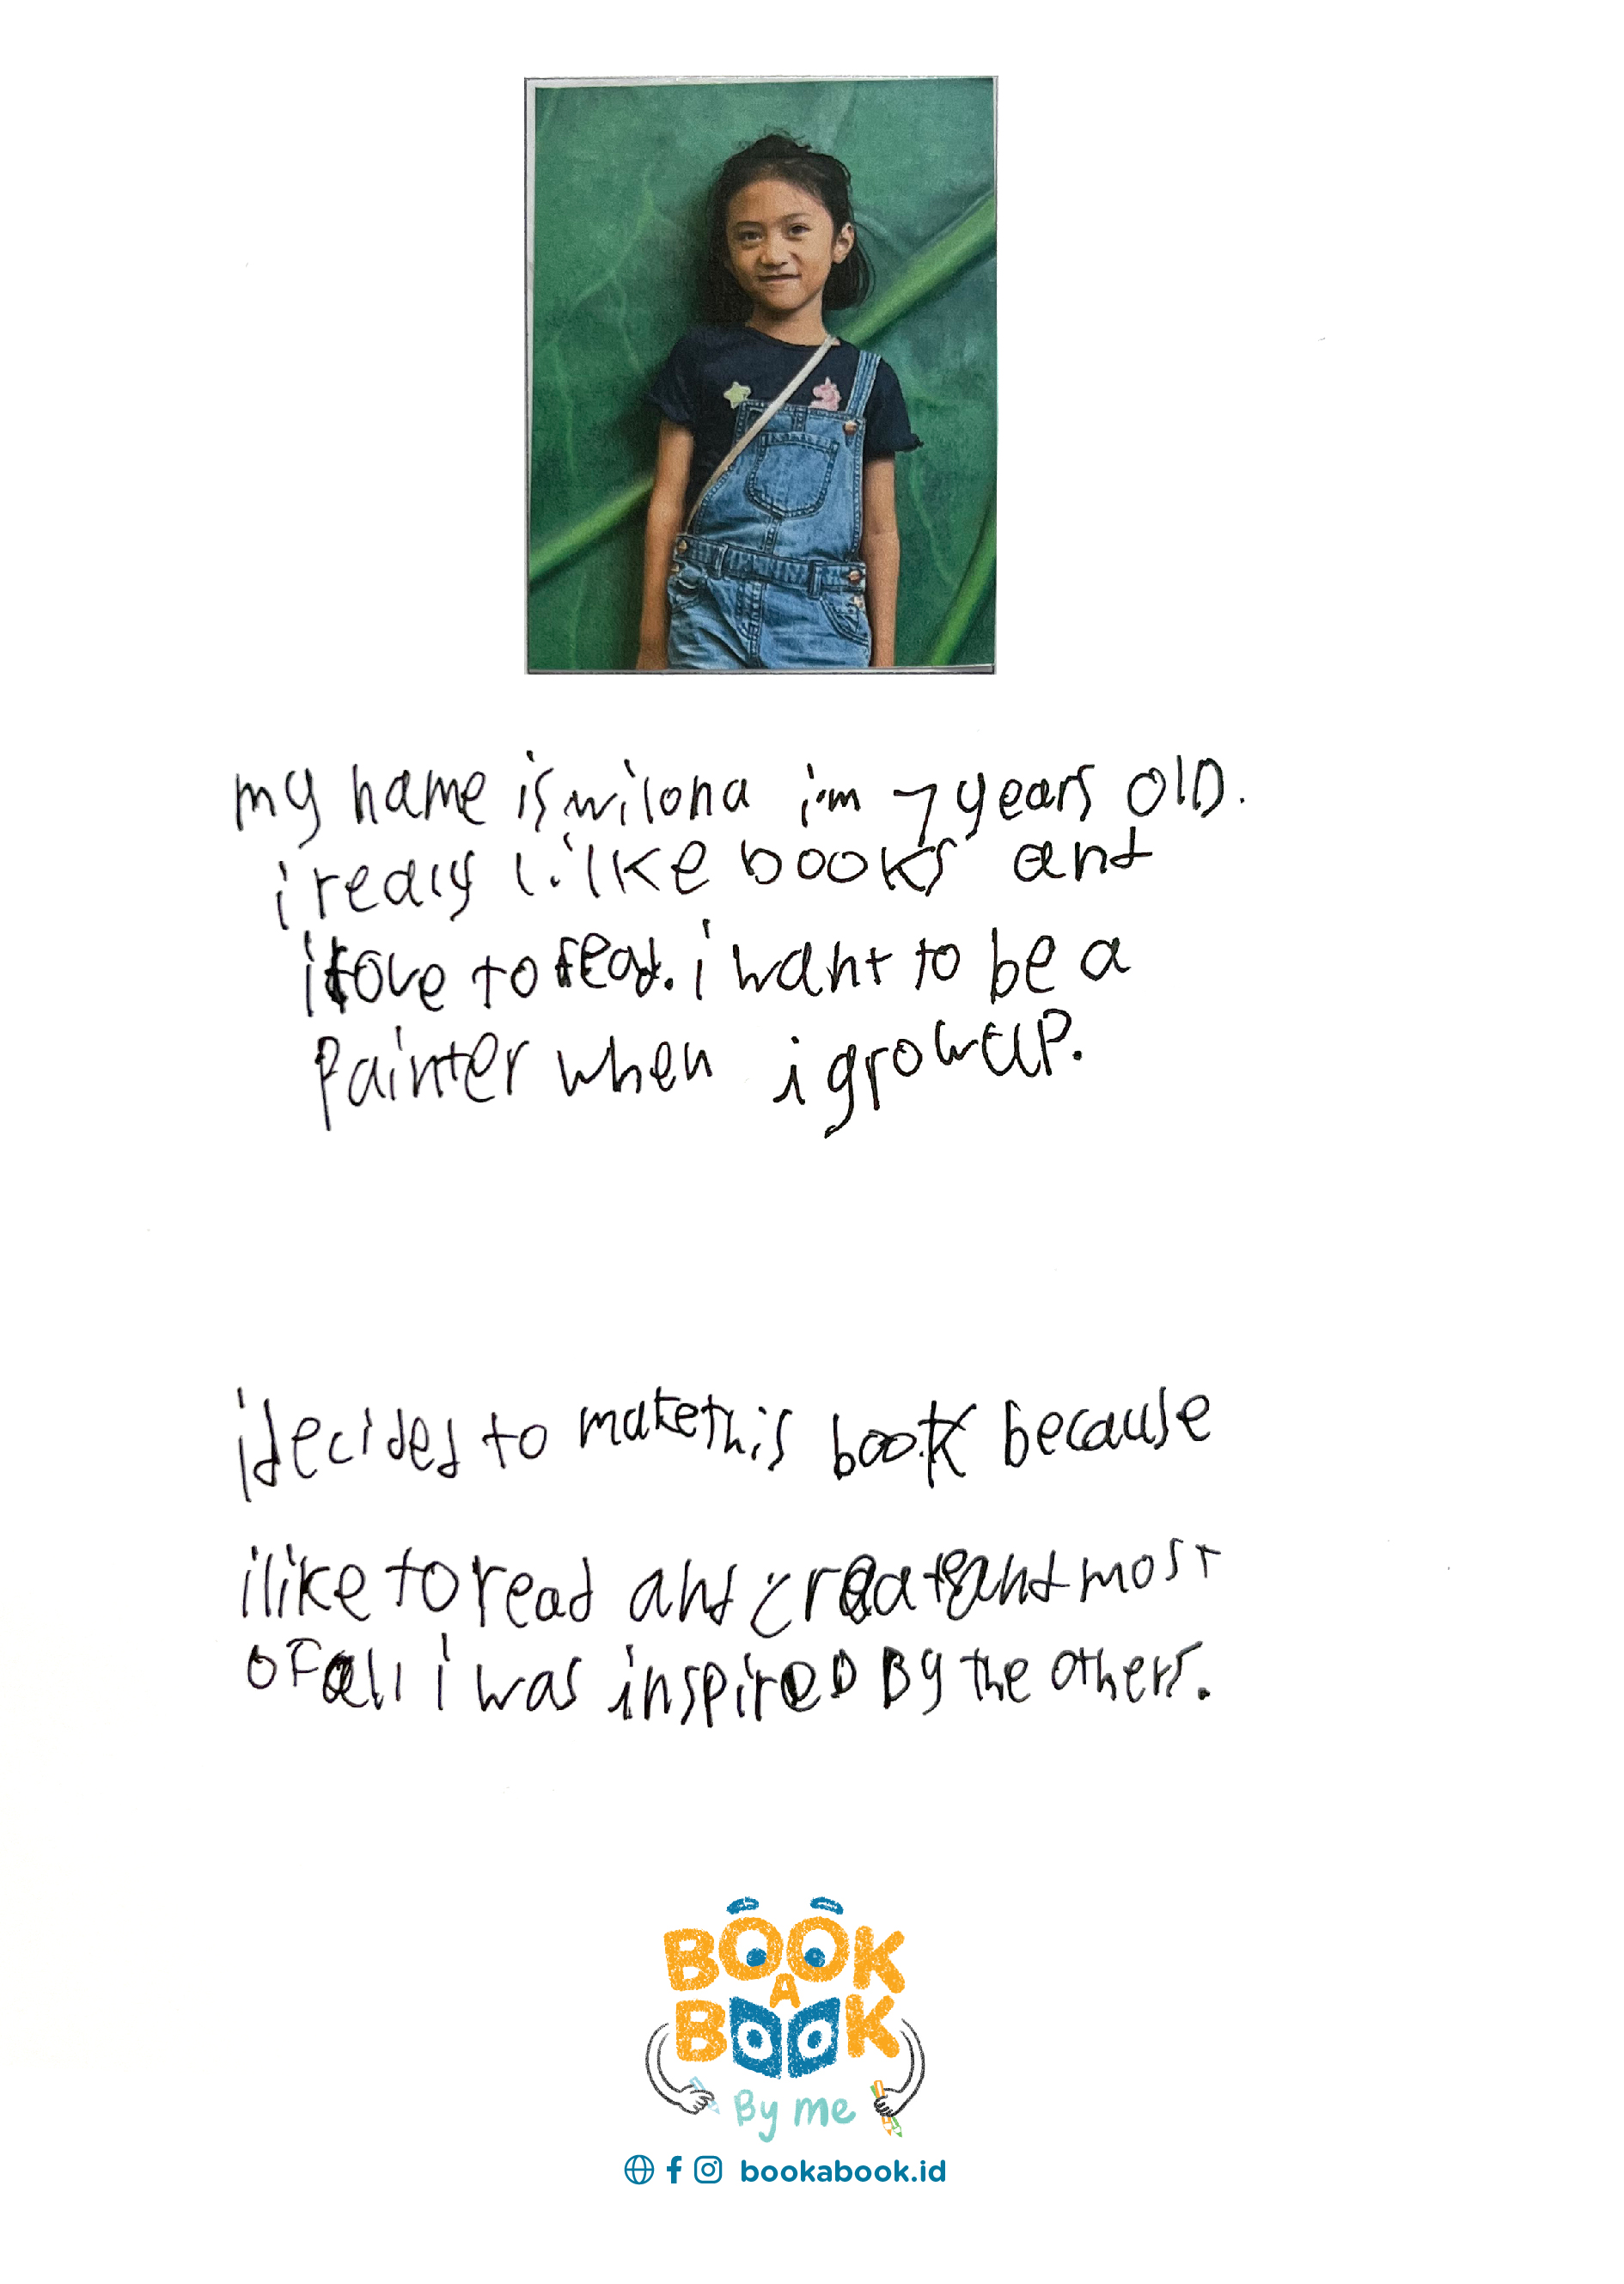 my name is wilona i'm 7 years old.
i realy like books and
i love to read. i want to be a
painter when i grow up.
i decided to make this book because
i like to read and create and most
of all i was inspired by the others.
BOOK
A
BOOK
By me
bookabook.id